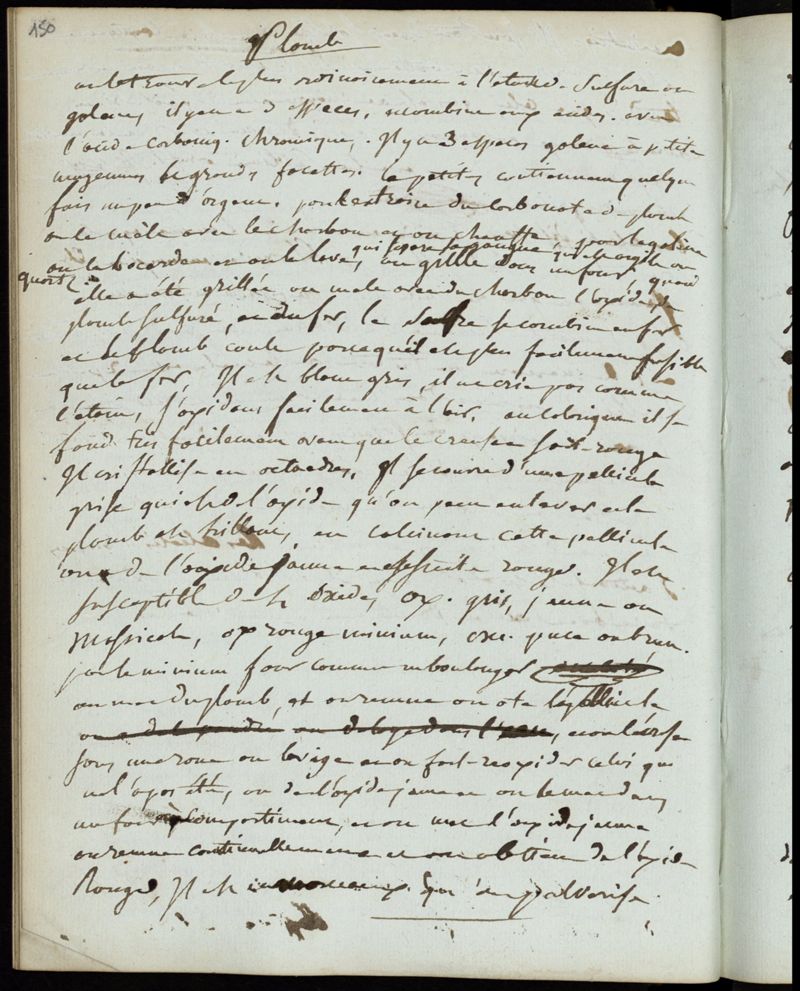 150
Plomb
on le trouve le plus ordinairement à l'état de Sulfure ou
galene, il y en a d especes, combiné aux acides. avec
l'acide carboniq. chromique, . Il y a 3 especes galene à petite
moyennes & grandes facettes. les petites contiennent quelque
fois un peu d'argent. pour extraire du carbonate de plomb
on le mêle avec le charbon et on chauffe, pour la galene
on la bocarde et on la lave, qui separe la gangue, on grille dans un four, quand
quartz
elle a été grillée on mele avec du charbon l'oxide de
plomb sulfuré, et du fer, le soufre se combine au fer
et le plomb coule parce qu'il est plus facilement fusible
que le fer, Il est blanc gris, il ne crie pas comme
l'étain, s'oxidant facilement à l'air. au calorique il se
fond très facilement avant que le creuset soit rouge
Il cristallise en octaedres, Il se couvre d'une pellicule
grise qui est de l'oxide qu'on peut enlever et le
plomb est brillant, en calcinant cette pellicule
on a de l'oxide jaune et ensuite rouge. Il est
susceptible de oxides, ox. gris, jaune ou
Massicot, ox rouge minium, oxi. puce ou brun.
pour le minium four comme un boulanger
on met du plomb, et on remue on ote la pellicule
et on l'écrase
sous une roue on lavige et on fait reoxider celui qui
ne l'a pas été, on a de l'oxide jaune et on le met dans
un four à compartiment, et on met l'oxide jaune
on remue continuellement et on obtient de l'oxide
Rouge, Il est en morceaux que l'on pulverise.